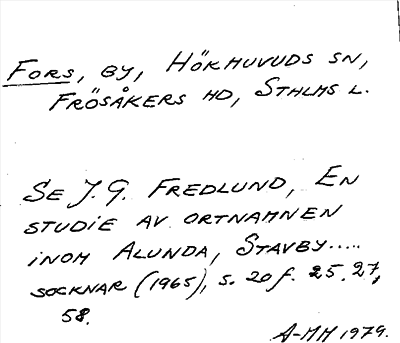 Fors, by, Hökhuvuds sn,
Frösåkers hd, Sthlms l.
Se J. G. Fredlund, En
studie av ortnamnen
inom Alunda, Stavby.....
socknar (1965), s. 20 f. 25, 27,
58.
A-MM 1979.